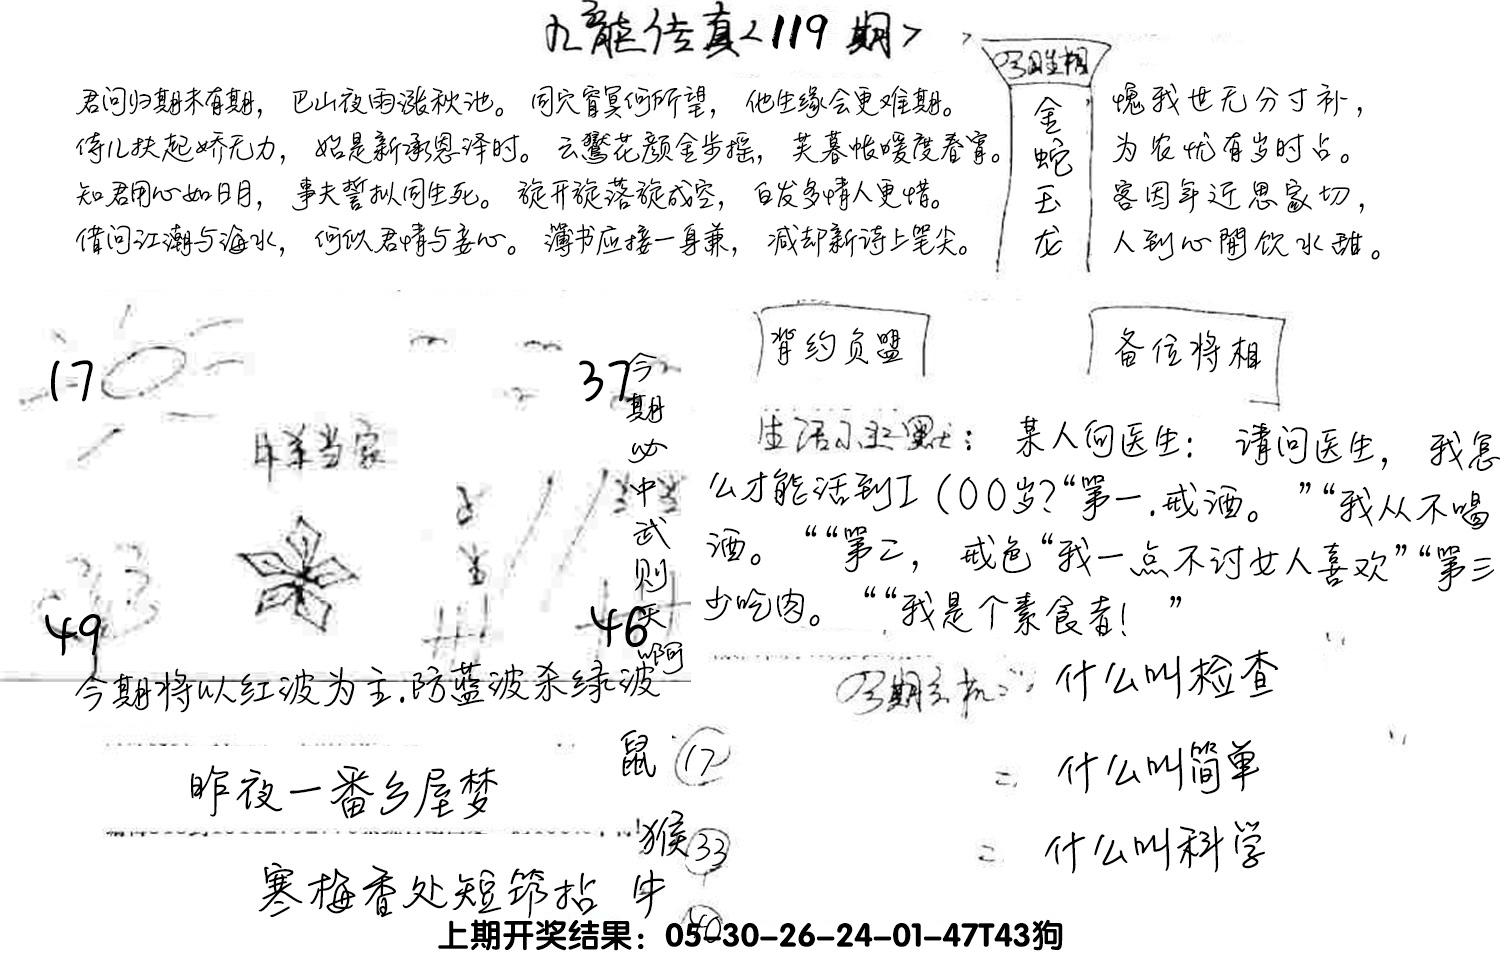 九龙传真<119期>
君问归期未有期，巴山夜雨涨秋池。同穴窅冥何所望，他生缘会更难期。
侍儿扶起娇无力，始是新承恩泽时。云鬓花颜金步摇，芙蓉帐暖度春宵。
知君用心如日月，事夫誓拟同生死。旋开旋落旋成空，白发多情人更惜。
借问江潮与海水，何似君情与妾心。薄书应接一身兼，减却新诗上笔尖。
金蛇玉龙
愧我世无分寸补，
为农忧有岁时占。
客因年近思家切，
人到心闲饮水甜。
17
37
49
46
今期必中武则天啊
今期将以红波为主.防蓝波杀绿波
背约负盟
备位将相
生活小幽默：某人问医生：请问医生，我怎
么才能活到I（00岁？“第一.戒酒。”“我从不喝
酒。““第二，戒色“我一点不讨女人喜欢”“第三
少吃肉。““我是个素食者！”
什么叫检查
= 什么叫简单
= 什么叫科学
昨夜一番乡屋梦
寒梅香处短筇拈
鼠 17
猴 33
牛 40
上期开奖结果：05-30-26-24-01-47T43狗